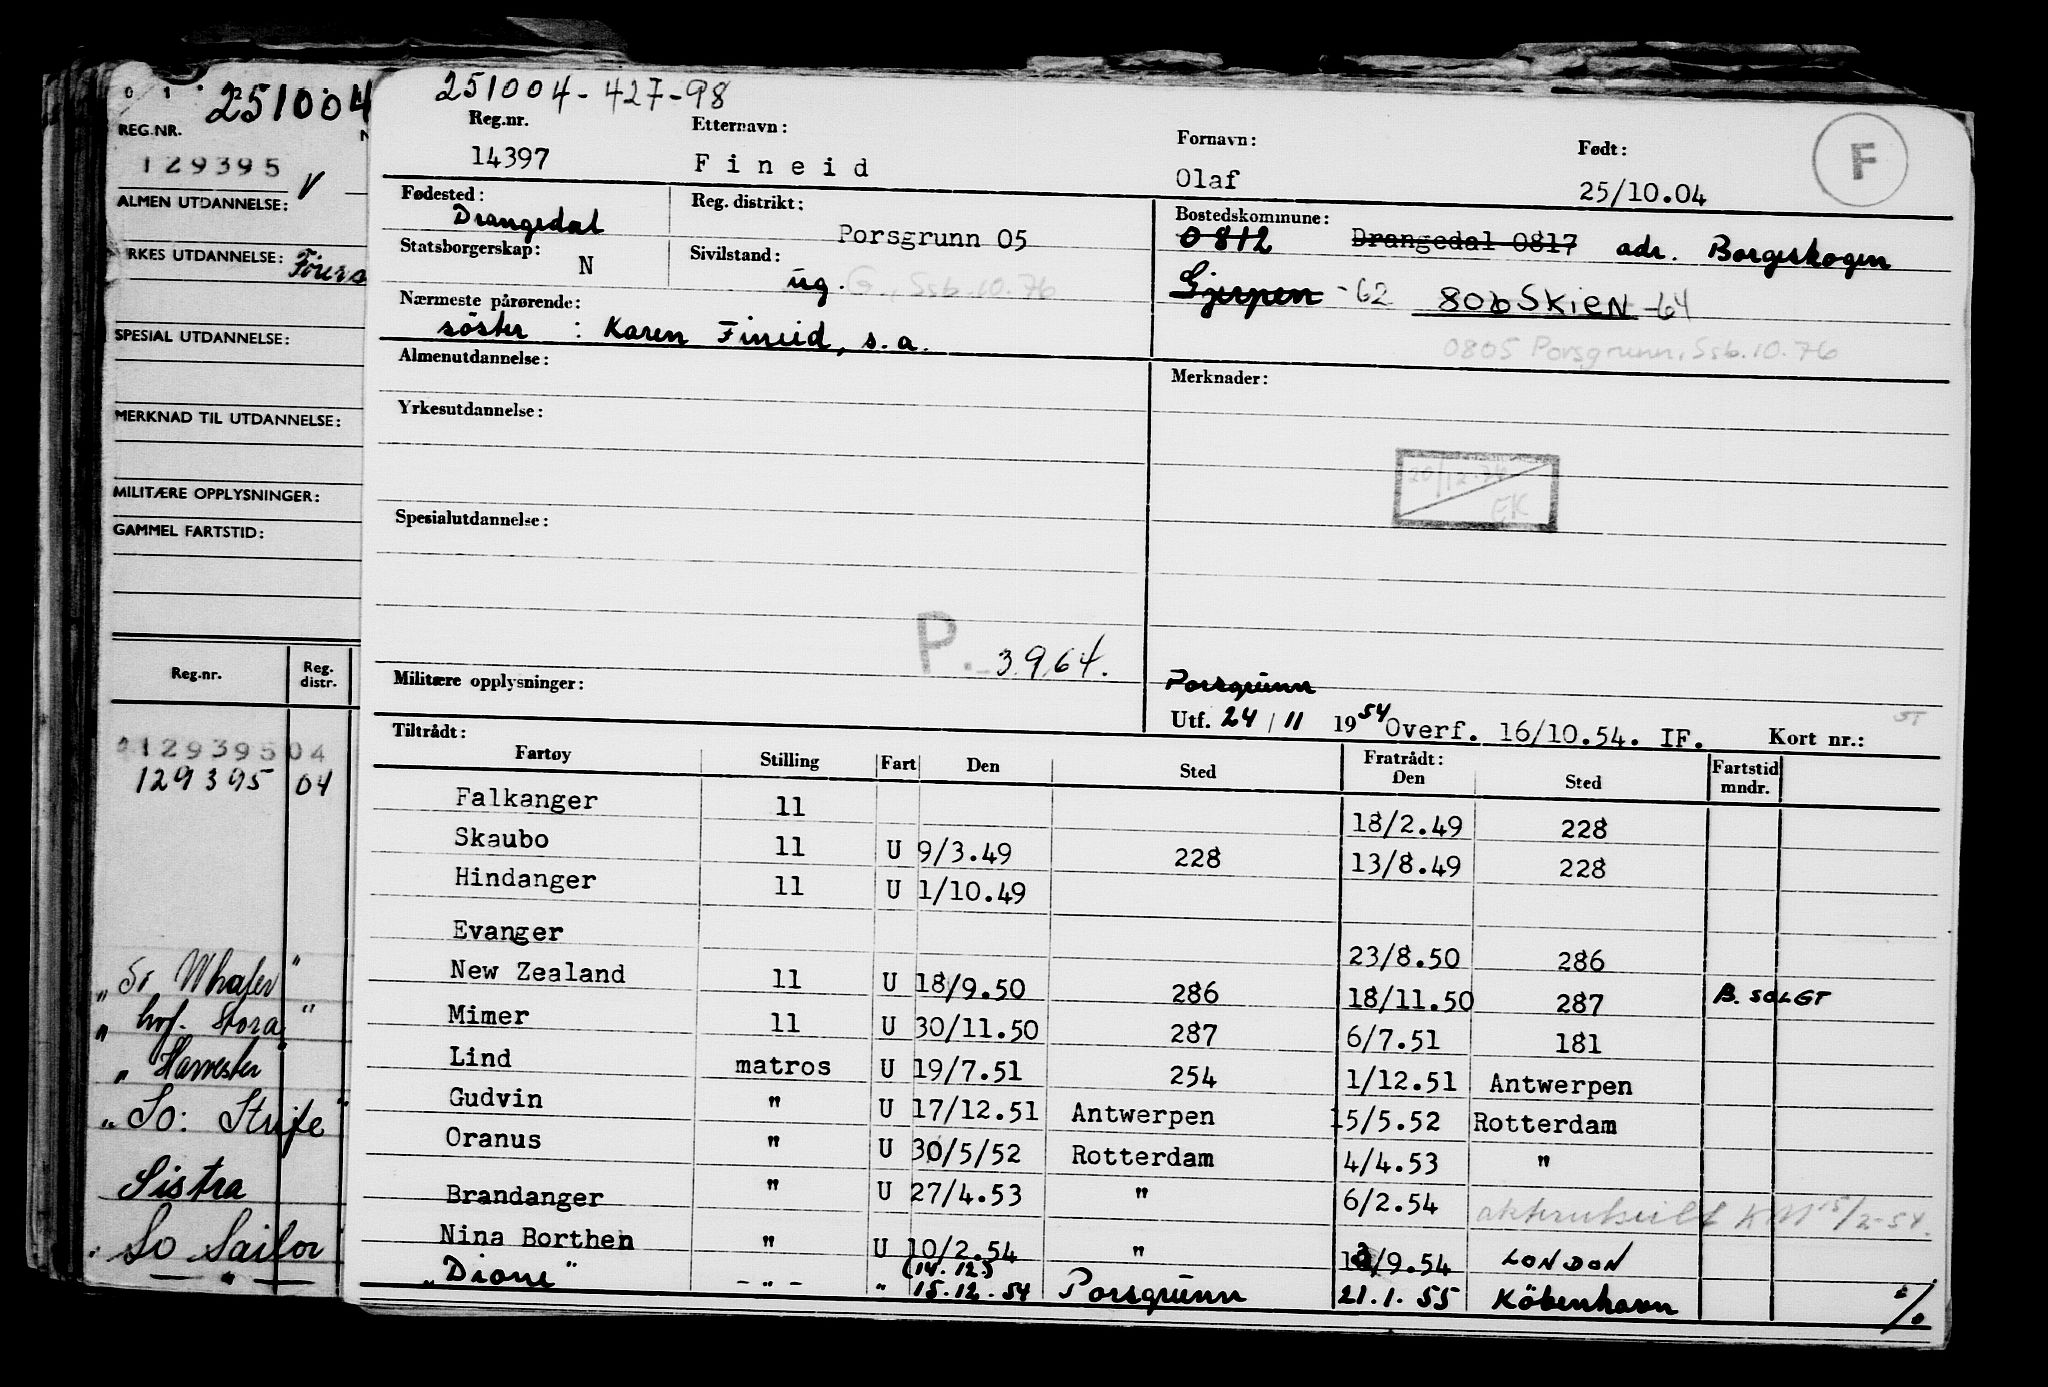 251004-427-98
Reg.nr. Etternavn: Fornavn: Født: F
14397 Fineid Olaf 25/10.04
Fødested: Reg. distrikt: Bostedskommune:
Drangedal Porsgrunn 05 0812 Drangedal 0817 adr. Borgeskogen
Statsborgerskap: Sivilstand:
N ug. G., Ssb. 10.76 Gjerpen -62 806 SKIEN -64
Nærmeste pårørende:
söster : Karen Fineid, s.a. 0805 Porsgrunn, Ssb. 10.76
Almenutdannelse: Merknader:
Yrkesutdannelse:
20/12.74
EK
Spesialutdannelse:
P. 3964.
Militære opplysninger: Porsgrunn
Utf. 24/11 1954 Overf. 16/10.54. IF. Kort nr.: ST
Tiltrådt: Fratrådt:
Fartøy Stilling Fart Den Sted Den Sted Fartstid mndr.
Falkanger 11 18/2.49 228
Skaubo 11 U 9/3.49 228 13/8.49 228
Hindanger 11 U 1/10.49
Evanger 23/8.50 286
New Zealand 11 U 18/9.50 286 18/11.50 287 B. SOLGT
Mimer 11 U 30/11.50 287 6/7.51 181
Lind matros U 19/7.51 254 1/12.51 Antwerpen
Gudvin " U 17/12.51 Antwerpen 15/5.52 Rotterdam
Oranus " U 30/5/52 Rotterdam 4/4.53 "
Brandanger " U 27/4.53 " 6/2.54 KM 15/2-54.
Nina Borthen " U 10/2.54 " /9.54 LONDON
(14.12.)
"Dione" - " - " 15.12.54 Porsgrunn 21.1.55 Köbenhavn
0 1 2
251004
REG.NR.
129395 V
ALMEN UTDANNELSE:
YRKES UTDANNELSE:
SPESIAL UTDANNELSE:
MERKNAD TIL UTDANNELSE:
MILITÆRE OPPLYSNINGER:
GAMMEL FARTSTID:
Reg.nr. Reg. distr.
12939504
129395 04
" So Whaler "
" hvf. Stora "
" Harvester "
" So: Strife "
Sistra
" So Sailor
— " —